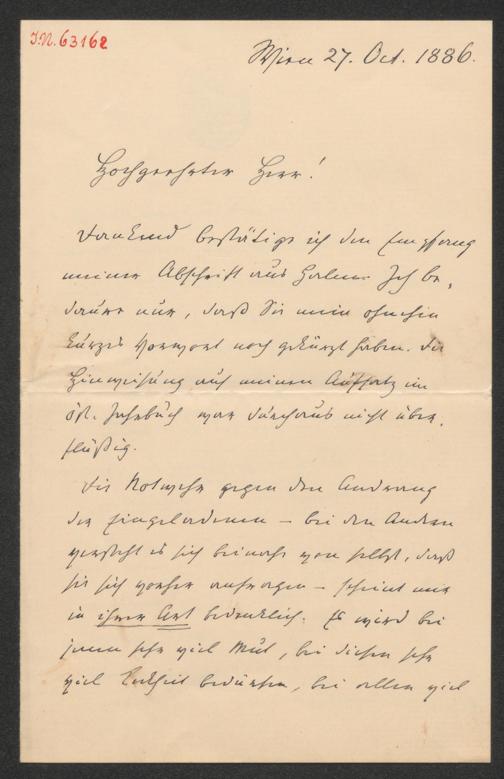 I.N. 63162
Wien 27. Oct. 1886.
Hochgeehrter Herr!
Dankend bestätige ich den Empfang
meiner Abschrift aus Halm. Ich be-
daure nur, daß Sie mein ohnehin
kurzes Vorwort noch gekürzt haben. Die
Hinweisung auf meinen Aufsatz im
öst. Jahrbuch war durchaus nicht über-
flüßig.
Die Notwehr gegen den Andrang
der Eingeladenen – bei den Andern
versteht es sich beinahe von selbst, daß
sie sich vorher anfragen – scheint mir
in ihrer Art bedenklich. Es wird bei
jenen sehr viel Mut, bei diesen sehr
viel bedürfen, bei allen viel